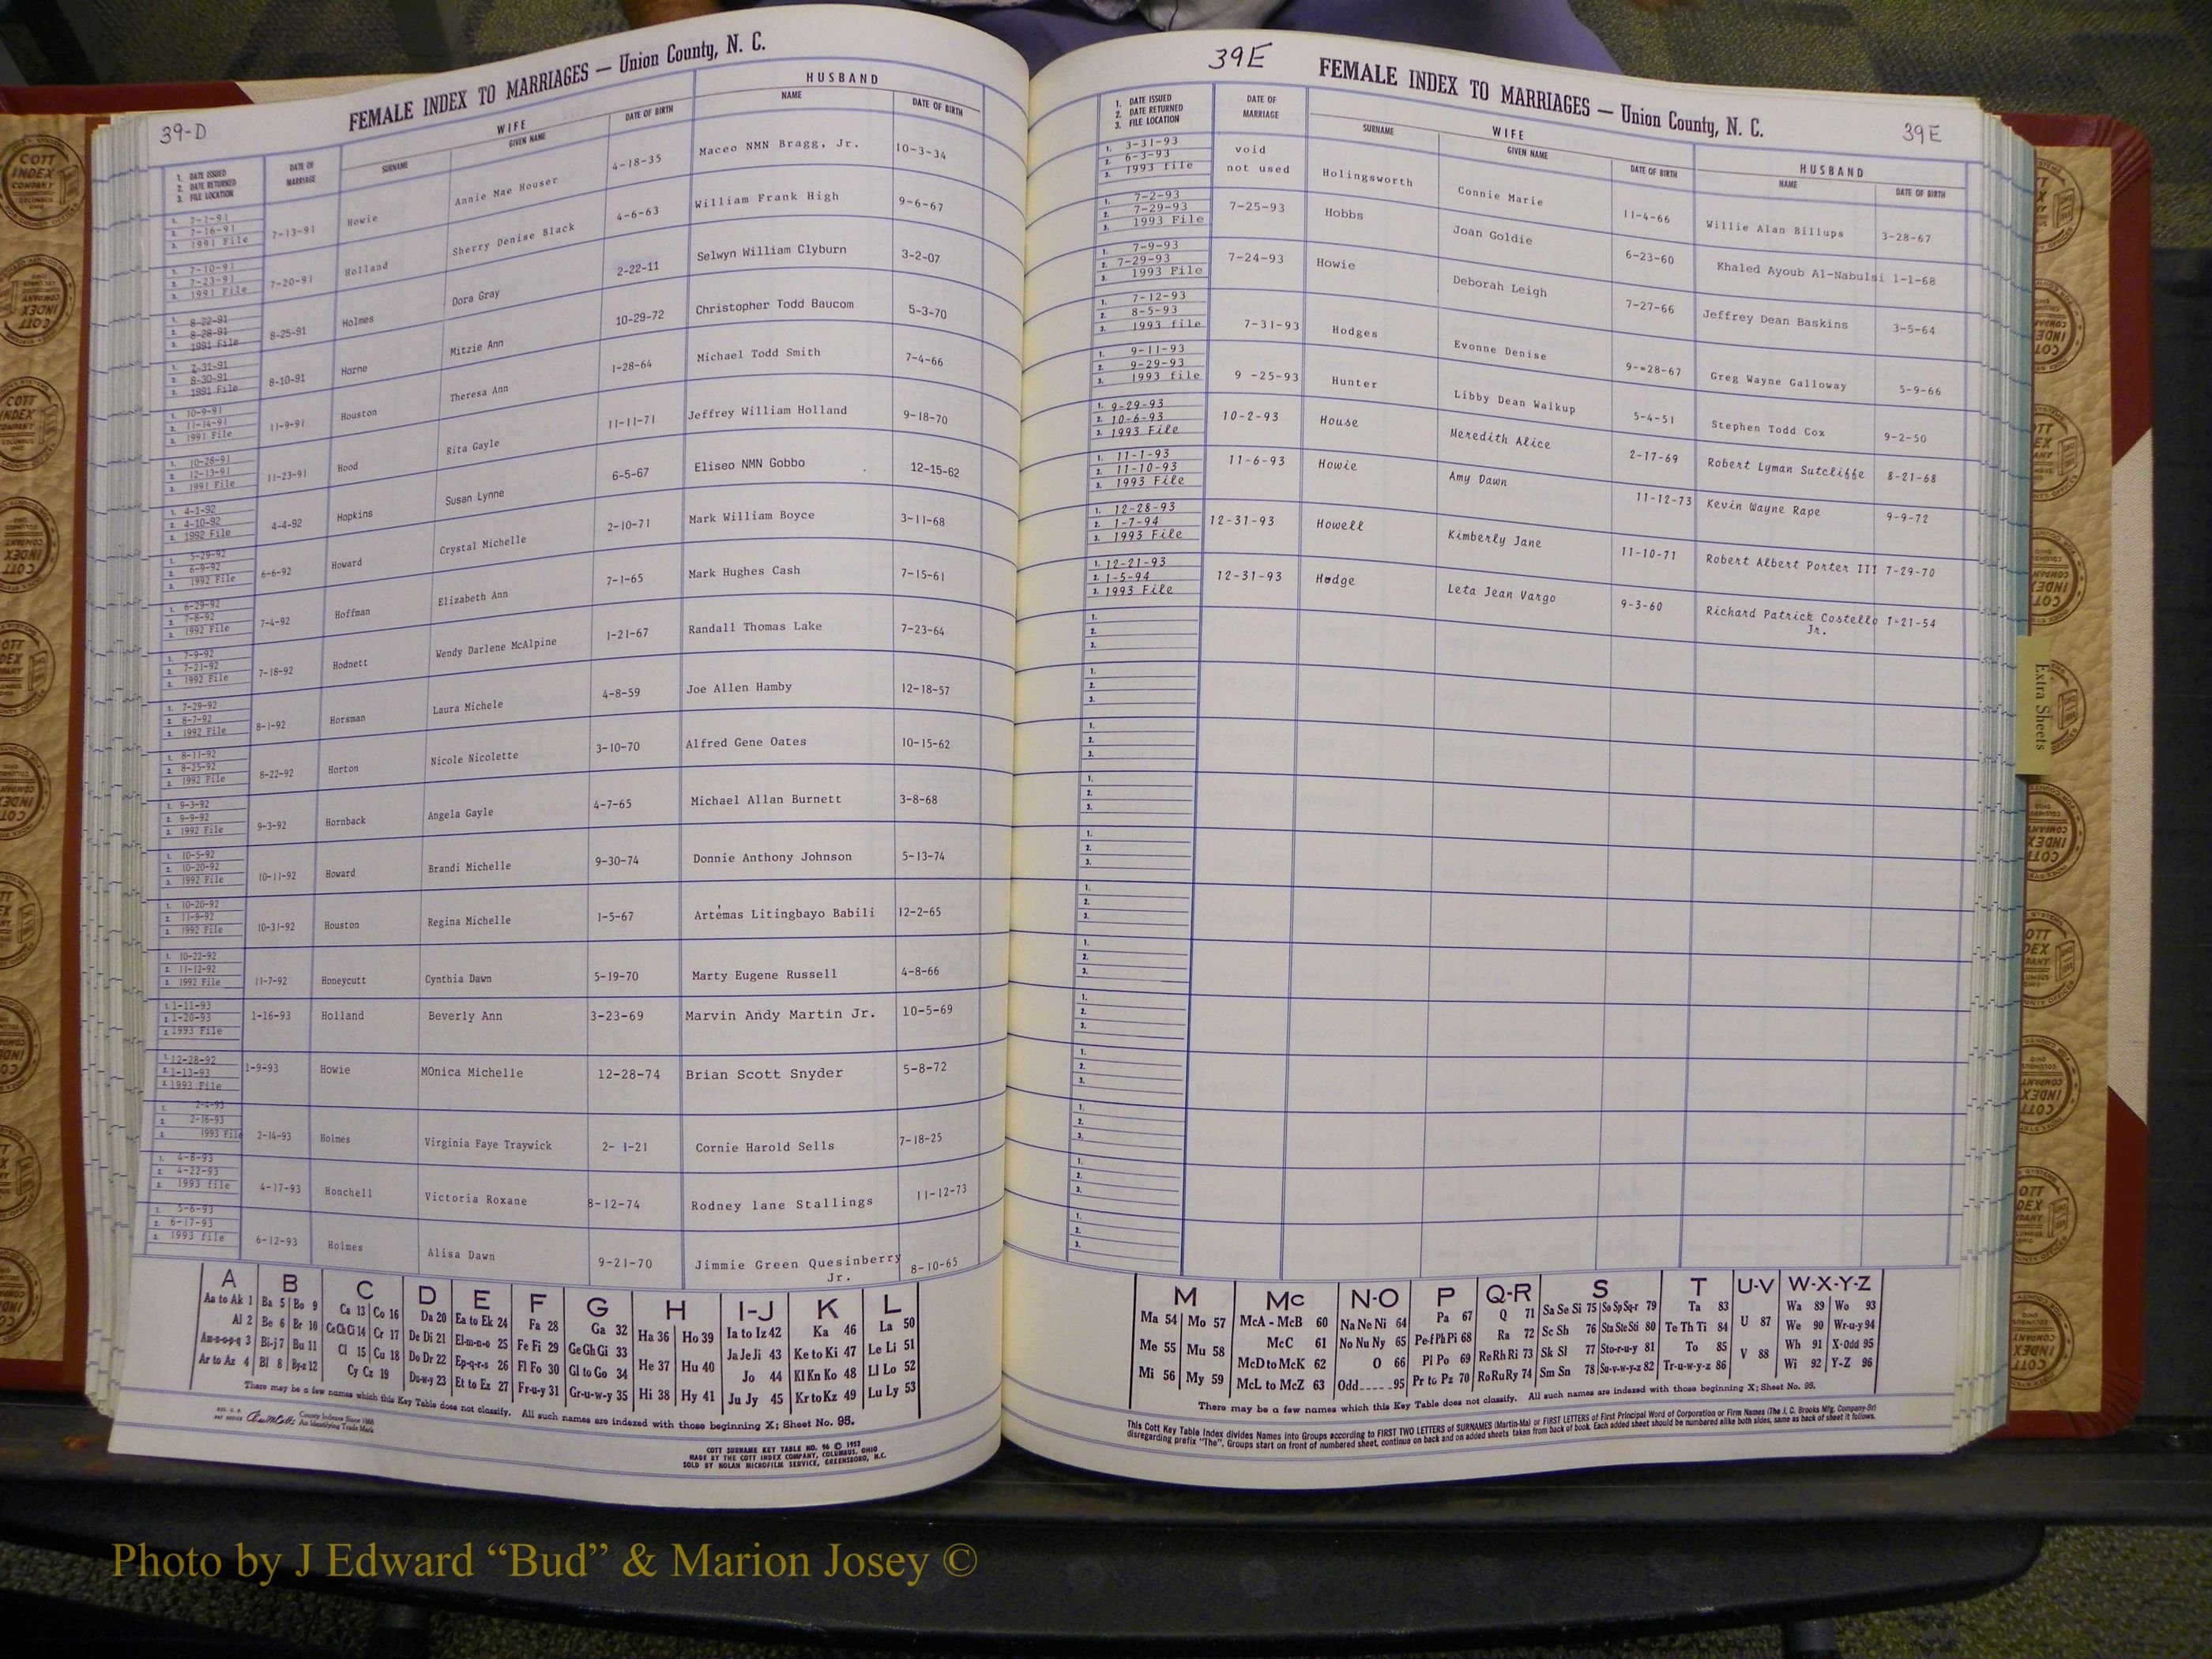 39-D
FEMALE INDEX TO MARRIAGES — Union County, N. C.
1. DATE ISSUED
2. DATE RETURNED
3. FILE LOCATION
DATE OF MARRIAGE
WIFE
SURNAME GIVEN NAME DATE OF BIRTH
HUSBAND
NAME DATE OF BIRTH
1. 7-1-91
2. 7-16-91
3. 1991 File
7-13-91 Howie Annie Mae Houser 4-18-35 Maceo NMN Bragg, Jr. 10-3-34
1. 7-10-91
2. 7-23-91
3. 1991 File
7-20-91 Holland Sherry Denise Black 4-6-63 William Frank High 9-6-67
1. 8-22-91
2. 8-28-91
3. 1991 File
8-25-91 Holmes Dora Gray 2-22-11 Selwyn William Clyburn 3-2-07
1. 7-31-91
2. 8-30-91
3. 1991 File
8-10-91 Horne Mitzie Ann 10-29-72 Christopher Todd Baucom 5-3-70
1. 10-9-91
2. 11-14-91
3. 1991 File
11-9-91 Houston Theresa Ann 1-28-64 Michael Todd Smith 7-4-66
1. 10-28-91
2. 12-13-91
3. 1991 File
11-23-91 Hood Rita Gayle 11-11-71 Jeffrey William Holland 9-18-70
1. 4-1-92
2. 4-10-92
3. 1992 File
4-4-92 Hopkins Susan Lynne 6-5-67 Eliseo NMN Gobbo 12-15-62
1. 5-29-92
2. 6-9-92
3. 1992 File
6-6-92 Howard Crystal Michelle 2-10-71 Mark William Boyce 3-11-68
1. 6-29-92
2. 7-8-92
3. 1992 File
7-4-92 Hoffman Elizabeth Ann 7-1-65 Mark Hughes Cash 7-15-61
1. 7-9-92
2. 7-21-92
3. 1992 File
7-18-92 Hodnett Wendy Darlene McAlpine 1-21-67 Randall Thomas Lake 7-23-64
1. 7-29-92
2. 8-7-92
3. 1992 File
8-1-92 Horsman Laura Michele 4-8-59 Joe Allen Hamby 12-18-57
1. 8-11-92
2. 8-25-92
3. 1992 File
8-22-92 Horton Nicole Nicolette 3-10-70 Alfred Gene Oates 10-15-62
1. 9-3-92
2. 9-9-92
3. 1992 File
9-3-92 Hornback Angela Gayle 4-7-65 Michael Allan Burnett 3-8-68
1. 10-5-92
2. 10-20-92
3. 1992 File
10-11-92 Howard Brandi Michelle 9-30-74 Donnie Anthony Johnson 5-13-74
1. 10-20-92
2. 11-9-92
3. 1992 File
10-31-92 Houston Regina Michelle 1-5-67 Artémas Litingbayo Babili 12-2-65
1. 10-22-92
2. 11-12-92
3. 1992 File
11-7-92 Honeycutt Cynthia Dawn 5-19-70 Marty Eugene Russell 4-8-66
1. 1-11-93
2. 1-20-93
3. 1993 File
1-16-93 Holland Beverly Ann 3-23-69 Marvin Andy Martin Jr. 10-5-69
1. 12-28-92
2. 1-13-93
3. 1993 File
1-9-93 Howie MOnica Michelle 12-28-74 Brian Scott Snyder 5-8-72
1. 2-4-93
2. 2-16-93
3. 1993 File
2-14-93 Holmes Virginia Faye Traywick 2- 1-21 Cornie Harold Sells 7-18-25
1. 4-8-93
2. 4-22-93
3. 1993 file
4-17-93 Honchell Victoria Roxane 8-12-74 Rodney lane Stallings 11-12-73
1. 5-6-93
2. 6-17-93
3. 1993 file
6-12-93 Holmes Alisa Dawn 9-21-70 Jimmie Green Quesinberry Jr. 8-10-65
A B C D E F G H I-J K L
Aa to Ak 1 Ba 5 Bo 9 Ca 13 Co 16 Da 20 Ea to Ek 24 Fa 28 Ga 32 Ha 36 Ho 39 Ia to Iz 42 Ka 46 La 50
Al 2 Be 6 Br 10 Ce Ch Ci 14 Cr 17 De Di 21 El-m-n-o 25 Fe Fi 29 Ge Gh Gi 33 Ja Je Ji 43 Ke to Ki 47 Le Li 51
Am-n-o-p-q 3 Bi-j 7 Bu 11 Cl 15 Cu 18 Do Dr 22 Ep-q-r-s 26 Fl Fo 30 Gl to Go 34 He 37 Hu 40 Jo 44 Kl Kn Ko 48 Ll Lo 52
Ar to Az 4 Bl 8 By-z 12 Cy Cz 19 Du-w-y 23 Et to Ez 27 Fr-u-y 31 Gr-u-w-y 35 Hi 38 Hy 41 Ju Jy 45 Kr to Kz 49 Lu Ly 53
There may be a few names which this Key Table does not classify. All such names are indexed with those beginning X; Sheet No. 95.
County Indexes Since 1888
An Identifying Trade Mark
COTT SURNAME KEY TABLE NO. 96 © 1952
MADE BY THE COTT INDEX COMPANY, COLUMBUS, OHIO
SOLD BY NOLAN MICROFILM SERVICE, GREENSBORO, N.C.
39E
FEMALE INDEX TO MARRIAGES — Union County, N. C.
39E
1. DATE ISSUED
2. DATE RETURNED
3. FILE LOCATION
DATE OF MARRIAGE
WIFE
SURNAME GIVEN NAME DATE OF BIRTH
HUSBAND
NAME DATE OF BIRTH
1. 3-31-93
2. 6-3-93
3. 1993 File
void not used Holingsworth Connie Marie 11-4-66 Willie Alan Billups 3-28-67
1. 7-2-93
2. 7-29-93
3. 1993 File
7-25-93 Hobbs Joan Goldie 6-23-60 Khaled Ayoub Al-Nabulsi 1-1-68
1. 7-9-93
2. 7-29-93
3. 1993 File
7-24-93 Howie Deborah Leigh 7-27-66 Jeffrey Dean Baskins 3-5-64
1. 7-12-93
2. 8-5-93
3. 1993 file
7-31-93 Hodges Evonne Denise 9-=28-67 Greg Wayne Galloway 5-9-66
1. 9-11-93
2. 9-29-93
3. 1993 file
9 -25-93 Hunter Libby Dean Walkup 5-4-51 Stephen Todd Cox 9-2-50
1. 9-29-93
2. 10-6-93
3. 1993 File
10-2-93 House Meredith Alice 2-17-69 Robert Lyman Sutcliffe 8-21-68
1. 11-1-93
2. 11-10-93
3. 1993 File
11-6-93 Howie Amy Dawn 11-12-73 Kevin Wayne Rape 9-9-72
1. 12-28-93
2. 1-7-94
3. 1993 File
12-31-93 Howell Kimberly Jane 11-10-71 Robert Albert Porter III 7-29-70
1. 12-21-93
2. 1-5-94
3. 1993 File
12-31-93 Hodge Leta Jean Vargo 9-3-60 Richard Patrick Costello Jr. 1-21-54
Extra Sheets
M Mc N-O P Q-R S T U-V W-X-Y-Z
Ma 54 Mo 57 McA - McB 60 Na Ne Ni 64 Pa 67 Q 71 Sa Se Si 75 So Sp Sq-r 79 Ta 83 U 87 Wa 89 Wo 93
Me 55 Mu 58 McC 61 No Nu Ny 65 Pe-f Ph Pi 68 Ra 72 Sc Sh 76 Sta Ste Sti 80 Te Th Ti 84 We 90 Wr-u-y 94
Mi 56 My 59 McD to McK 62 O 66 Pl Po 69 Re Rh Ri 73 Sk Sl 77 Sto-r-u-y 81 To 85 V 88 Wh 91 X-Odd 95
McL to McZ 63 Odd 95 Pr to Pz 70 Ro Ru Ry 74 Sm Sn 78 Su-v-w-y-z 82 Tr-u-w-y-z 86 Wi 92 Y-Z 96
There may be a few names which this Key Table does not classify. All such names are indexed with those beginning X; Sheet No. 95.
This Cott Key Table Index divides Names into Groups according to FIRST TWO LETTERS of SURNAMES (Martin-Ma) or FIRST LETTERS of First Principal Word of Corporation or Firm Names (The J. C. Brooks Mfg. Company-Br)
disregarding prefix "The". Groups start on front of numbered sheet, continue on back and on added sheets taken from back of book. Each added sheet should be numbered alike both sides, same as back of sheet it follows.
Photo by J Edward “Bud” & Marion Josey ©